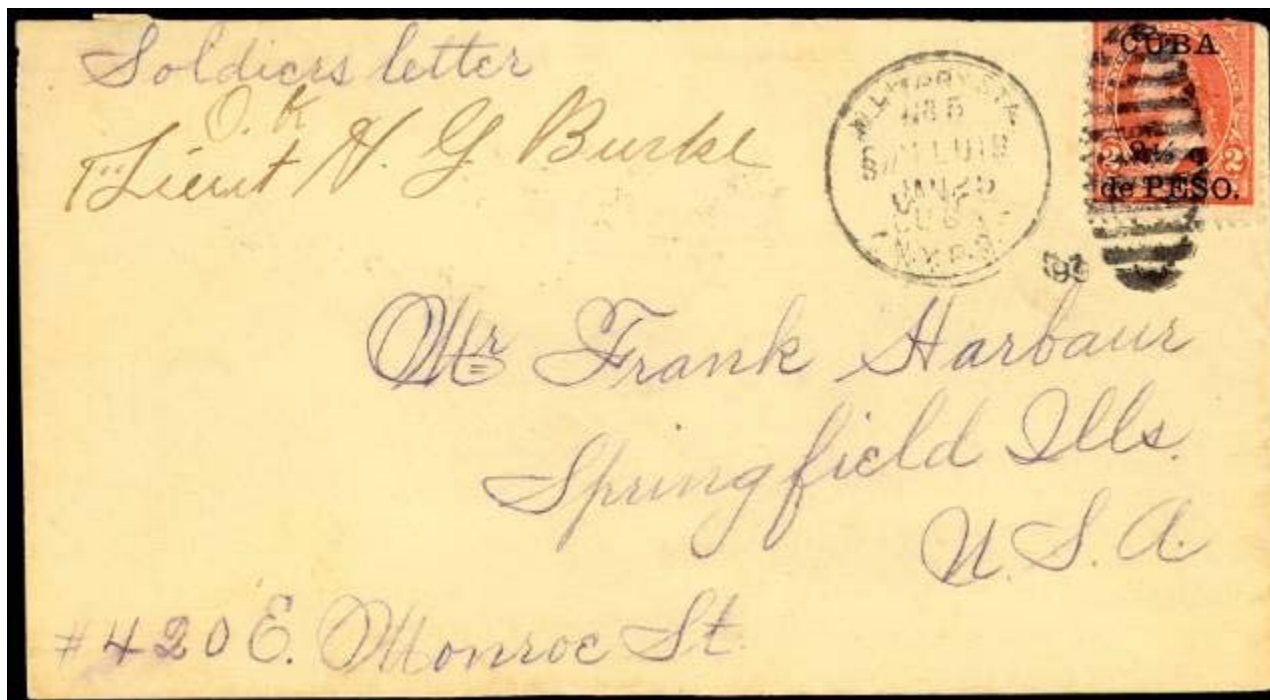 Soldiers letter
O.K
1st Lieut H. G. Burke
U.S. MILITARY STA.
No 5
SAN LUIS
JAN 25
CUBA
N.Y.P.O.
CUBA
2 2½ c. 2
de PESO.
Mr Frank Harbaur
Springfield Ills.
U.S.A.
#420 E. Monroe St.